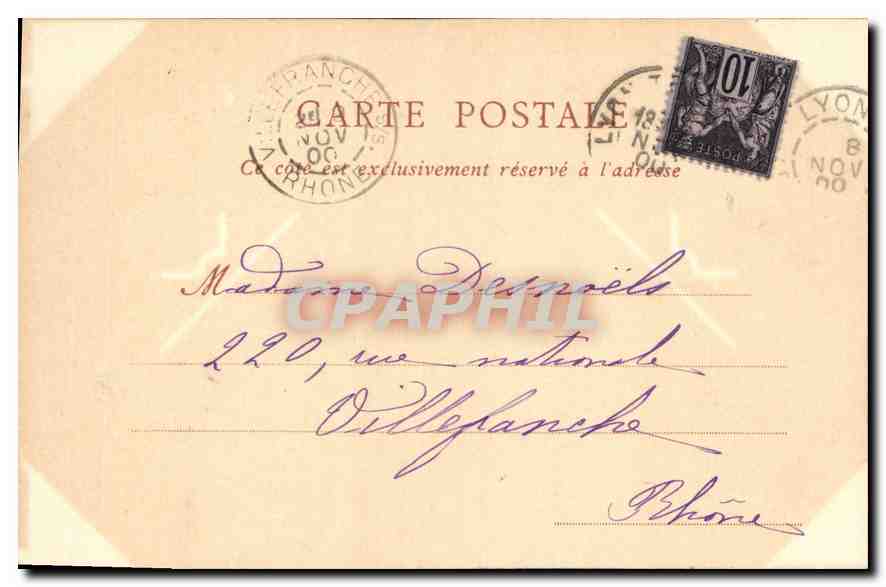 VILLEFRANCHE-S-S.
NOV
00
RHONE
CARTE POSTALE
Ce côté est exclusivement réservé à l'adresse
10
POSTE
LYON
18
N
00
LYON
8
NOV
00
Madame Desnoëls
CPAPHIL
220, rue nationale
Villefranche
Rhône